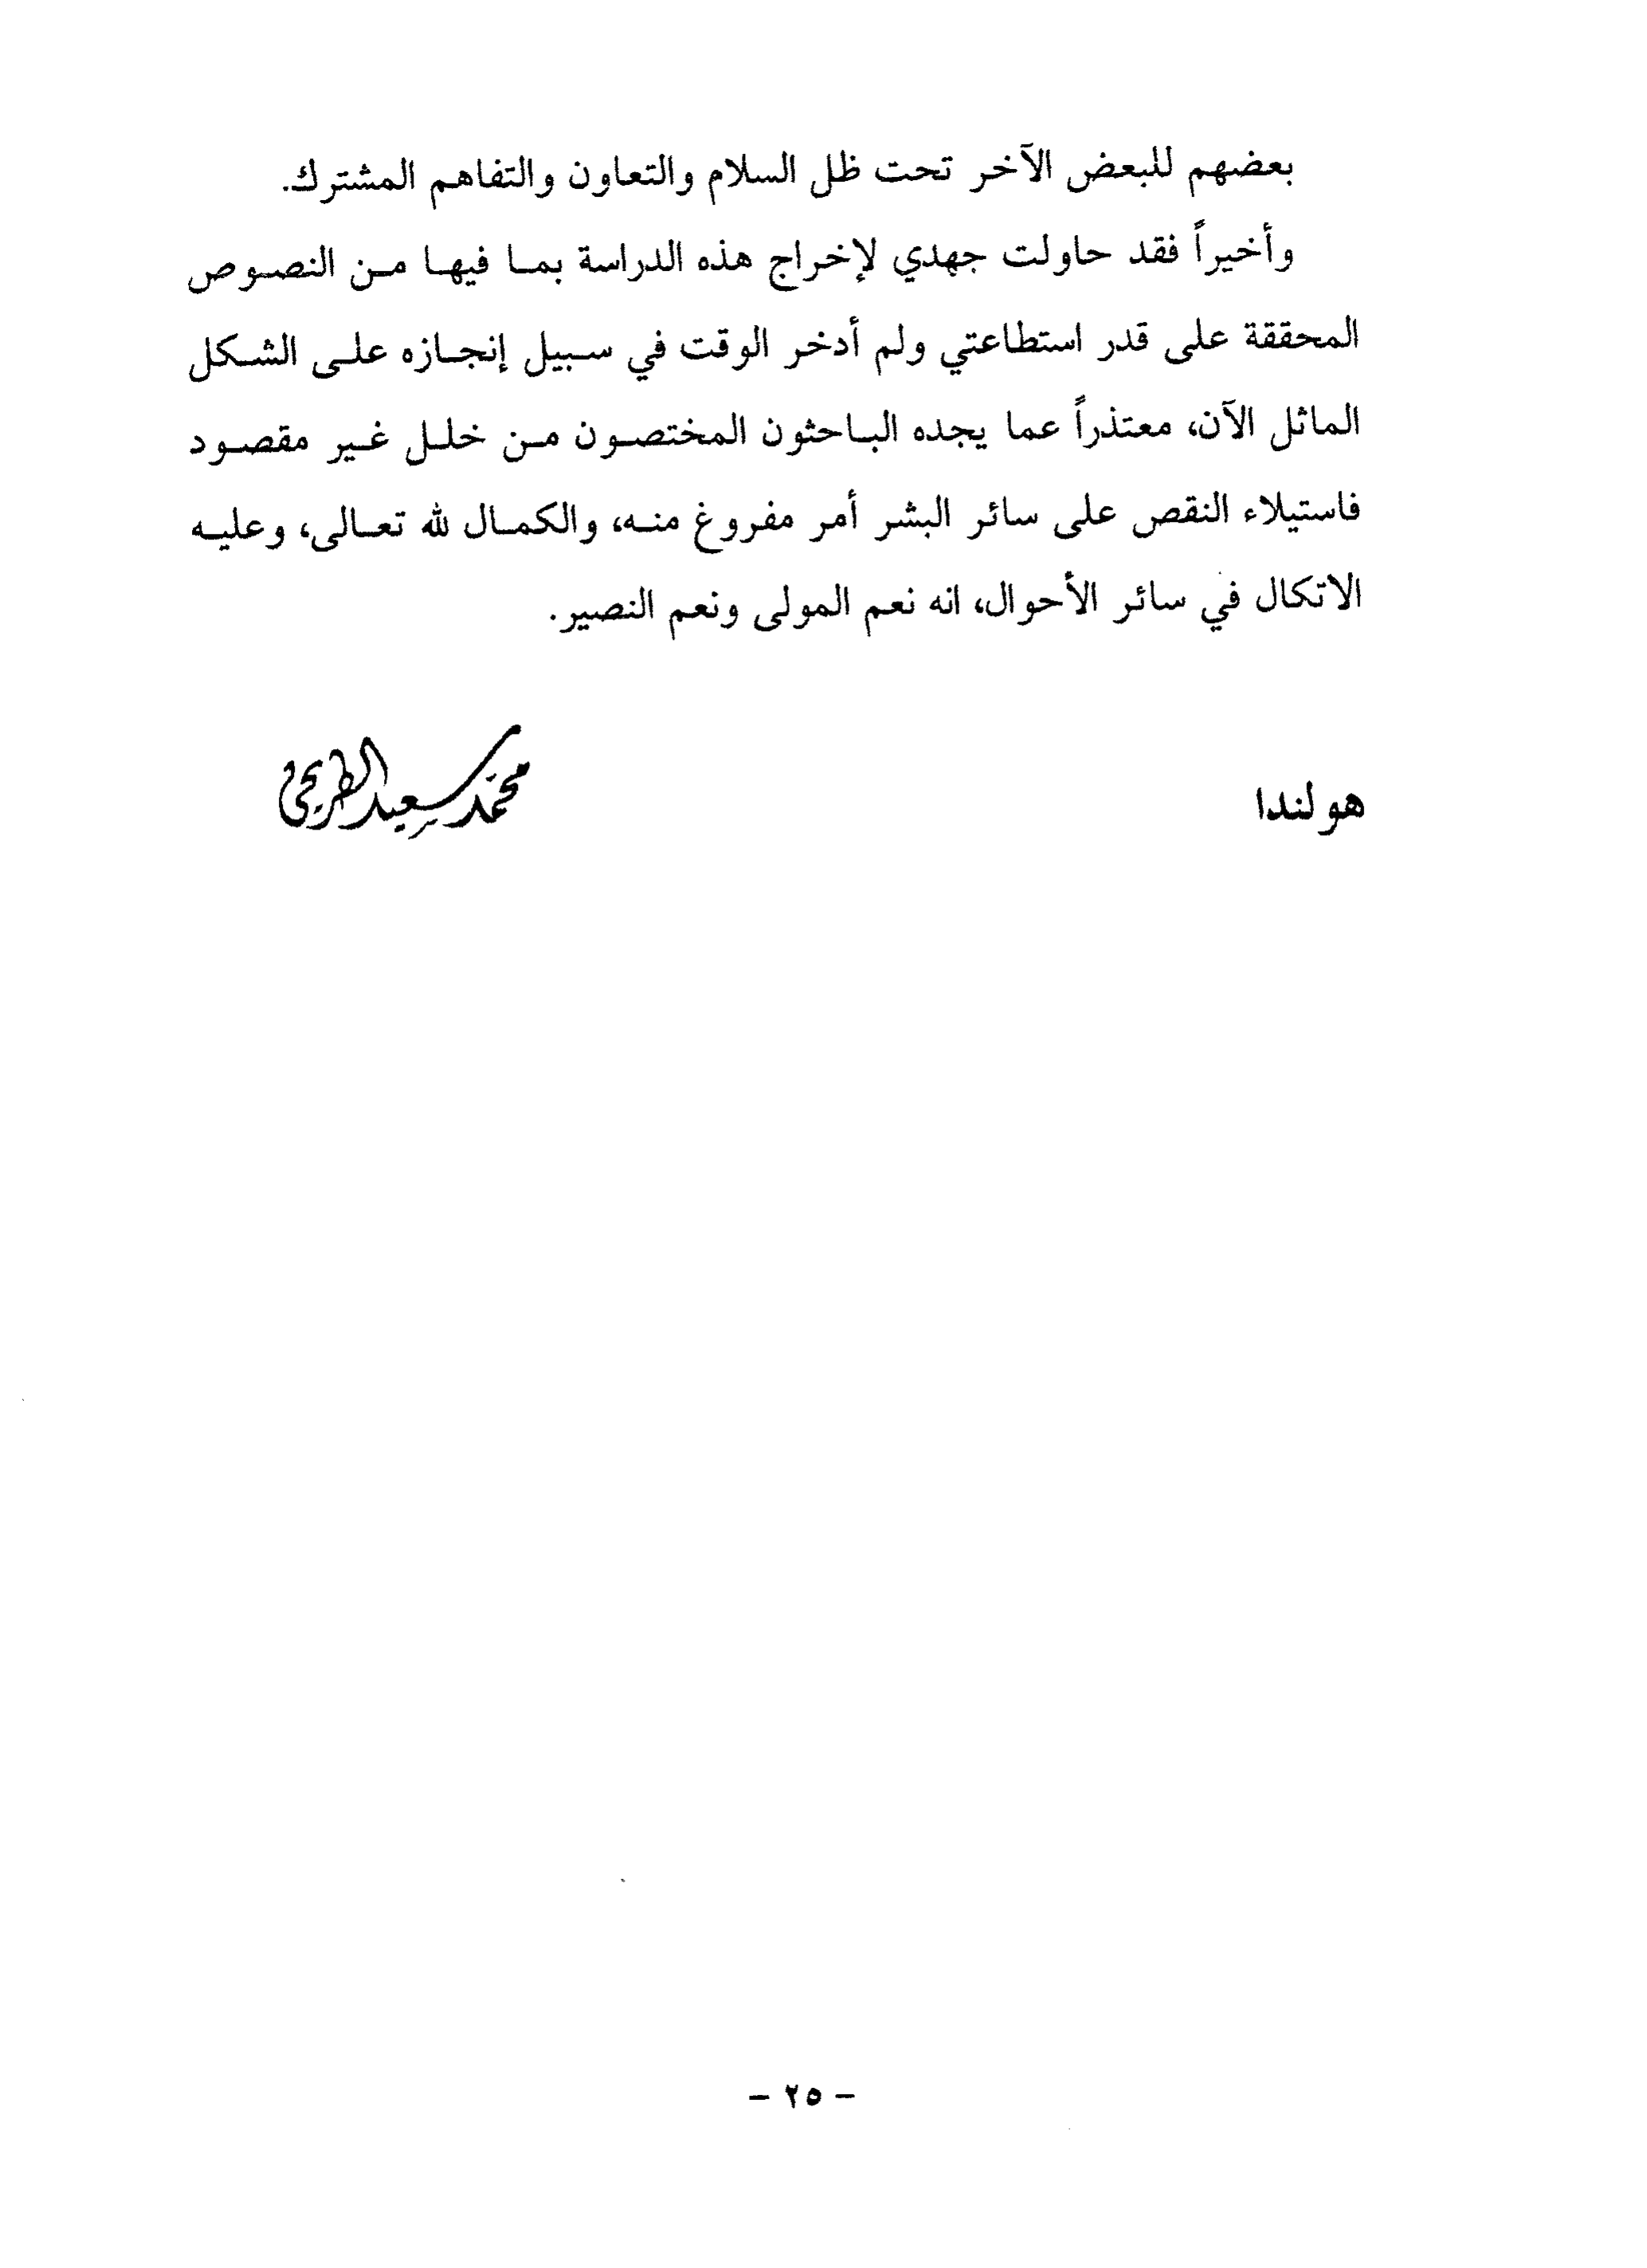 بعضهم للبعض الآخر تحت ظل السلام والتعاون والتفاهم المشترك.
وأخيراً فقد حاولت جهدي لإخراج هذه الدراسة بما فيها من النصوص
المحققة على قدر استطاعتي ولم أدخر الوقت في سبيل إنجازه على الشكل
الماثل الآن، معتذراً عما يجده الباحثون المختصون من خلل غير مقصود
فاستيلاء النقص على سائر البشر أمر مفروغ منه، والكمال لله تعالى، وعليه
الاتكال في سائر الأحوال، انه نعم المولى ونعم النصير.
هولندا
محمد سعيد الطريحي
- ٢٥ -